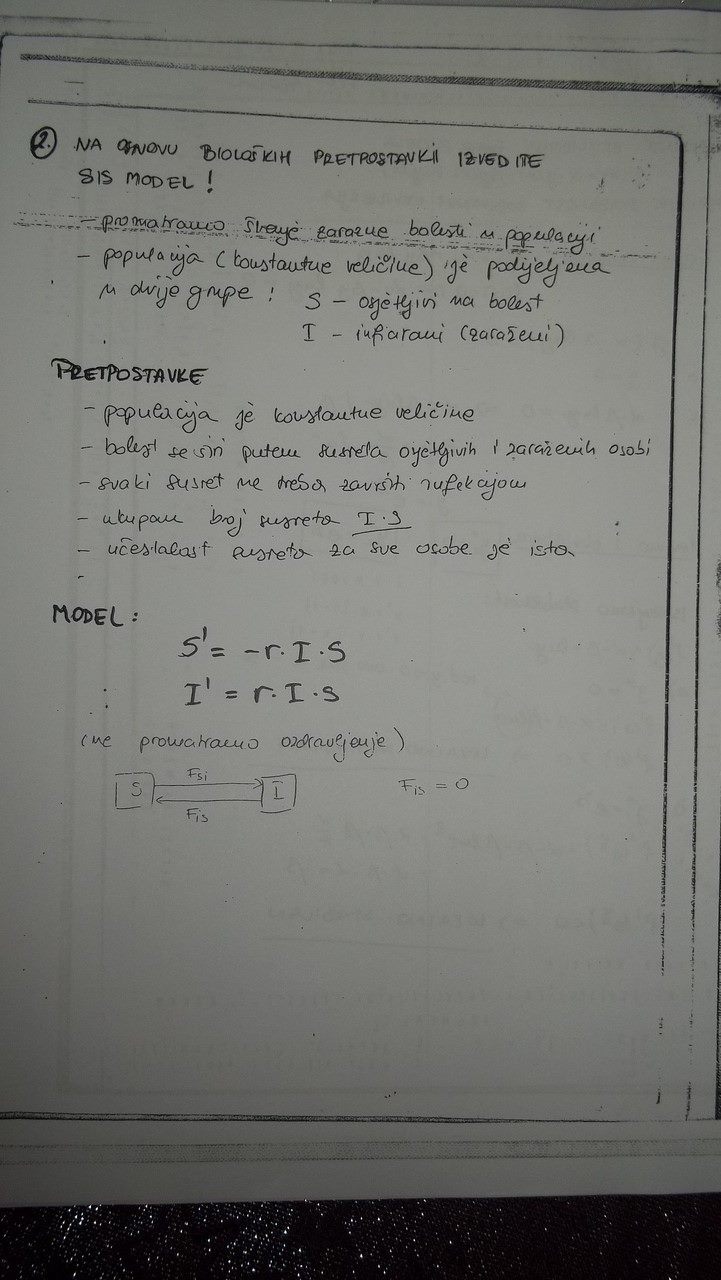 2. NA OSNOVU BIOLOŠKIH PRETPOSTAVKI IZVEDITE
SIS MODEL !
- promatramo širenje zarazne bolesti u populaciji
- populacija (konstantne veličine) je podijeljena
u dvije grupe : S - osjetljivi na bolest
I - inficirani (zaraženi)
PRETPOSTAVKE
- populacija je konstantne veličine
- bolest se širi putem susreta osjetljivih i zaraženih osobi
- svaki susret ne treba završiti infekcijom
- ukupan broj susreta I·S
- učestalost susreta za sve osobe je ista
-
MODEL :
S' = -r·I·S
I' = r·I·S
(ne promatramo ozdravljenje)
Fsi
S I Fis = 0
Fis